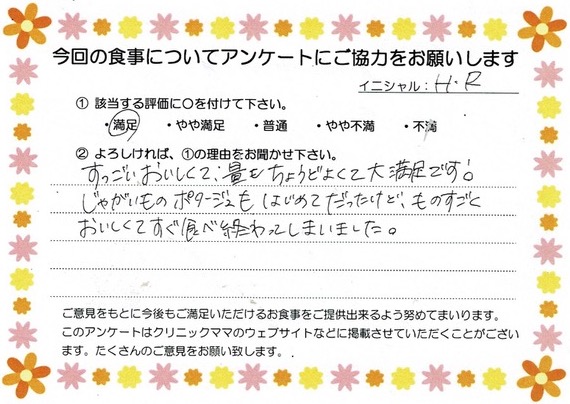 今回の食事についてアンケートにご協力をお願いします
イニシャル：H.R
① 該当する評価に〇を付けて下さい。
・満足 ・やや満足 ・普通 ・やや不満 ・不満
② よろしければ、①の理由をお聞かせ下さい。
すっごいおいしくて、量もちょうどよくて大満足です！
じゃがいものポタージュもはじめてだったけど、ものすごく
おいしくてすぐ食べ終わってしまいました。
ご意見をもとに今後もご満足いただけるお食事をご提供出来るよう努めてまいります。
このアンケートはクリニックママのウェブサイトなどに掲載させていただくことがござい
ます。たくさんのご意見をお願い致します。